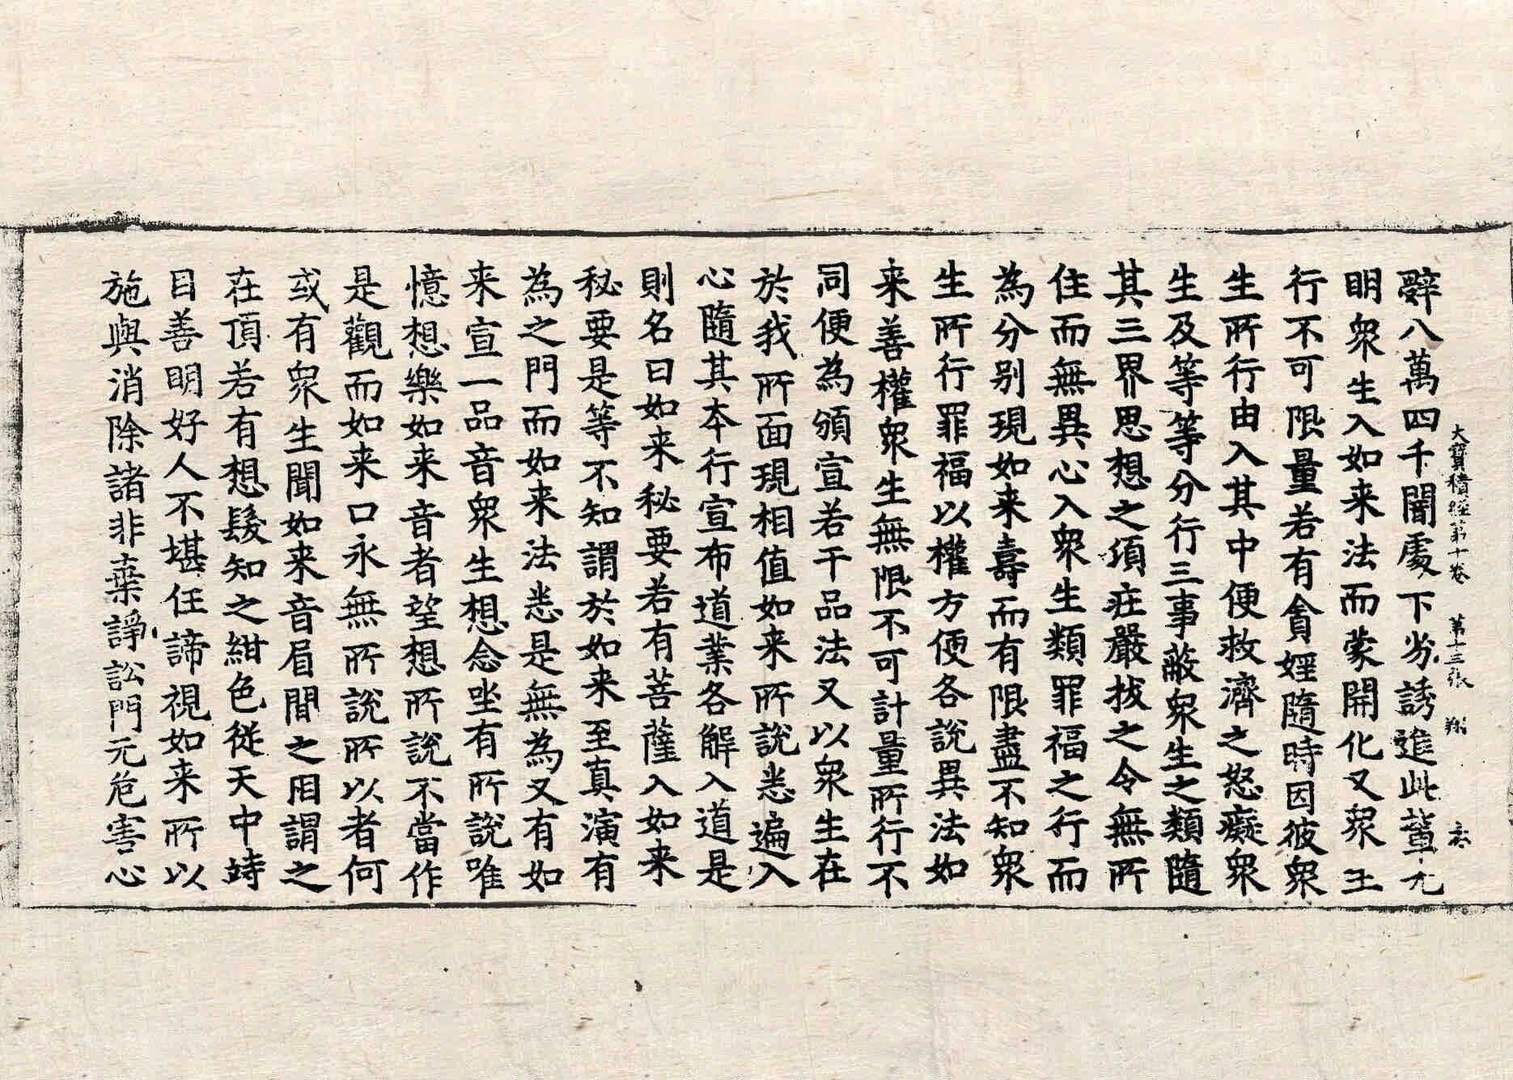 大寶積經第十卷 第十三張 翔
辭八萬四千闇處下劣誘進此輩元
明衆生入如来法而蒙開化又衆生
行不可限量若有貪婬隨時因彼衆
生所行由入其中便救濟之怒癡衆
生及等等分行三事蔽衆生之類隨
其三界思想之項莊嚴拔之令無所
住而無異心入衆生類罪福之行而
為分别現如来壽而有限盡不知衆
生所行罪福以權方便各說異法如
来善權衆生無限不可計量所行不
同便為頒宣若干品法又以衆生在
於我所面現相值如来所說悉遍入
心隨其本行宣布道業各解入道是
則名曰如来秘要若有菩薩入如来
秘要是等不知謂於如来至真演有
為之門而如来法悉是無為又有如
来宣一品音衆生想念坐有所說唯
憶想樂如来音者望想所說不當作
是觀而如来口永無所說所以者何
或有衆生聞如来音眉間之相謂之
在頂若有想髮知之紺色從天中跱
目善明好人不堪任諦視如来所以
施與消除諸非棄諍訟門元危害心